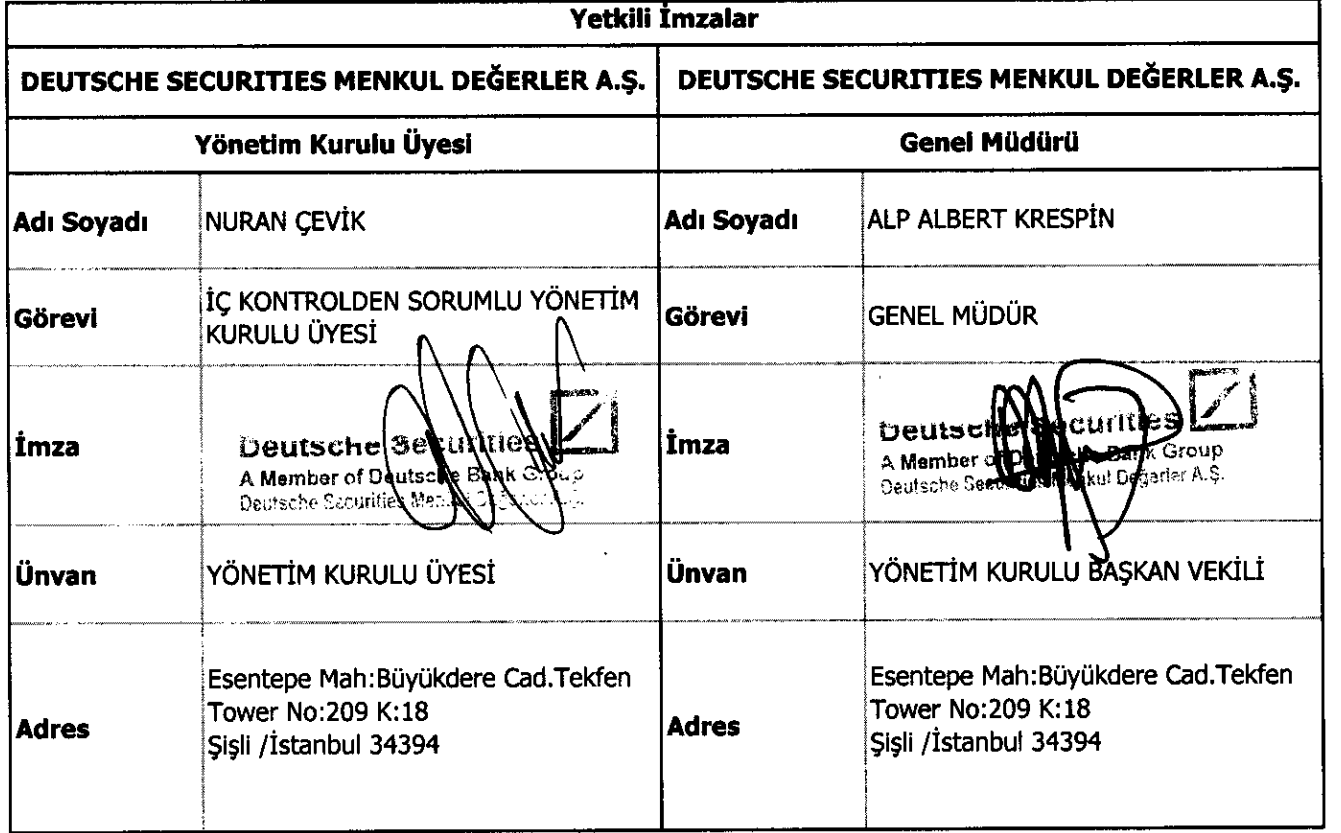 Yetkili İmzalar
DEUTSCHE SECURITIES MENKUL DEĞERLER A.Ş.
DEUTSCHE SECURITIES MENKUL DEĞERLER A.Ş.
Yönetim Kurulu Üyesi
Genel Müdürü
Adı Soyadı
NURAN ÇEVİK
Adı Soyadı
ALP ALBERT KRESPİN
Görevi
İÇ KONTROLDEN SORUMLU YÖNETİM
KURULU ÜYESİ
Görevi
GENEL MÜDÜR
İmza
Deutsche Securities
A Member of Deutsche Bank Group
Deutsche Securities
İmza
Deutsche Securities
A Member of Bank Group
Deutsche Değerler A.Ş.
Ünvan
YÖNETİM KURULU ÜYESİ
Ünvan
YÖNETİM KURULU BAŞKAN VEKİLİ
Adres
Esentepe Mah:Büyükdere Cad.Tekfen
Tower No:209 K:18
Şişli /İstanbul 34394
Adres
Esentepe Mah:Büyükdere Cad.Tekfen
Tower No:209 K:18
Şişli /İstanbul 34394